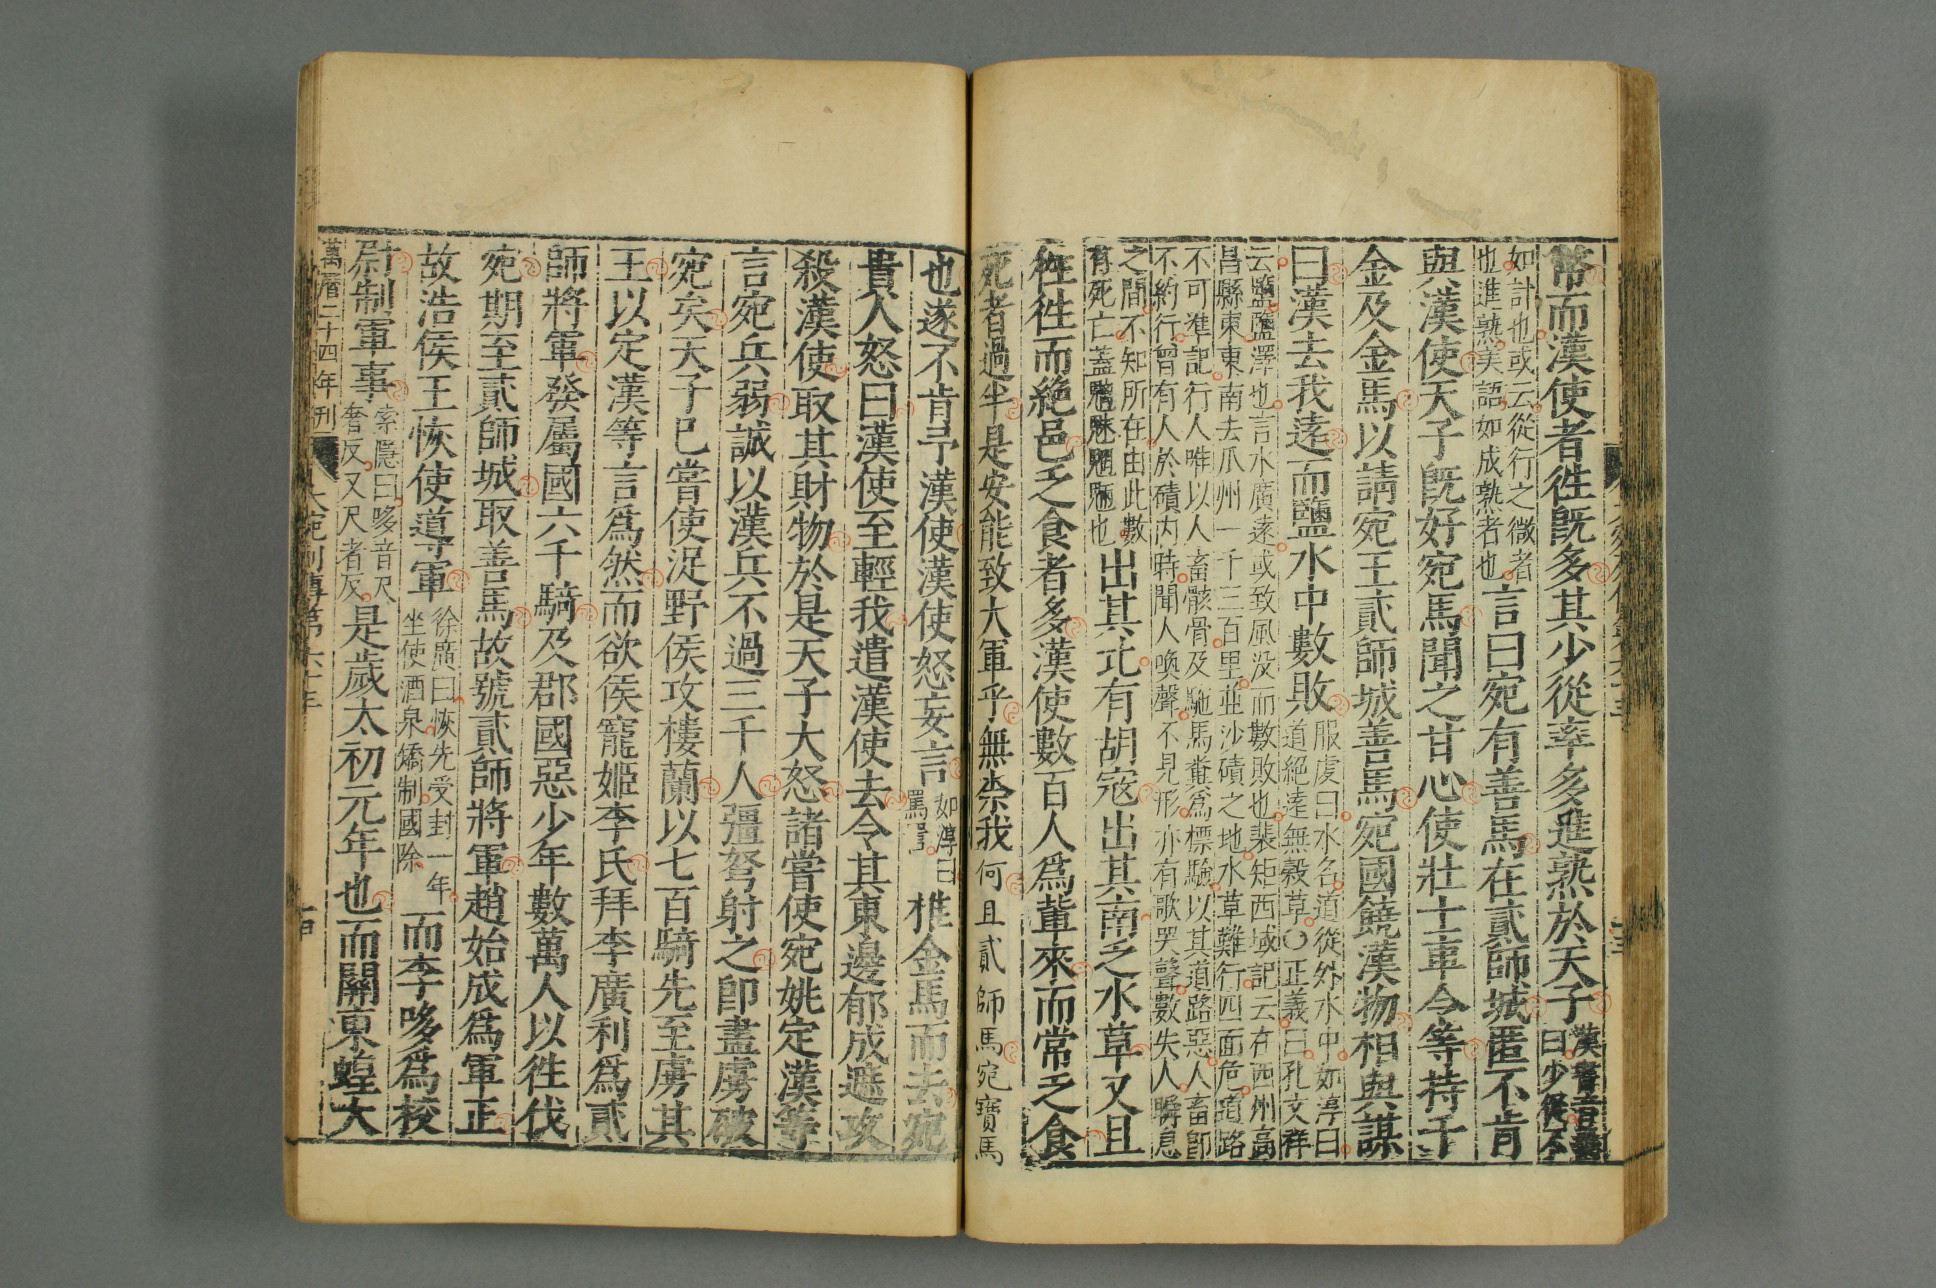 常而漢使者徃旣多其少從率多進熟於天子漢書音義曰少從不
如計也或云從行之微者也進熟美語如成熟者也言曰宛有善馬在貳師城匿不肯
與漢使天子旣好宛馬聞之甘心使壯士車令等持千
金及金馬以請宛王貳師城善馬宛國饒漢物相與謀
曰漢去我遠而鹽水中數敗服虔曰水名道從外水中如淳曰道絕遠無穀草○正義曰孔文祥
云鹽鹽澤也言水廣遠或致風没而數敗也裴矩西域記云在西州高昌縣東東南去瓜州一千三百里並沙磧之地水草難行四面危道路
不可准記行人唯以人畜骸骨及駞馬糞爲標驗以其道路惡人畜卽不約行曾有人於磧内時聞人喚聲不見形亦有歌哭聲數失人瞬息
之間不知所在由此數有死亡蓋魑魅魍魎也出其北有胡寇出其南乏水草又且
徃徃而絶邑乏食者多漢使數百人爲軰來而常乏食
死者過半是安能致大軍乎無柰我何且貳師馬宛寶馬
也遂不肯予漢使漢使怒妄言如淳曰罵詈椎金馬而去宛
貴人怒曰漢使至輕我遣漢使去令其東邊郁成遮攻
殺漢使取其財物於是天子大怒諸嘗使宛姚定漢等
言宛兵弱誠以漢兵不過三千人彊弩射之卽盡虜破
宛矣天子已嘗使浞野侯攻樓蘭以七百騎先至虜其
王以定漢等言爲然而欲侯寵姬李氏拜李廣利爲貳
師將軍發屬國六千騎及郡國惡少年數萬人以徃伐
宛期至貳師城取善馬故號貳師將軍趙始成爲軍正
故浩侯王恢使導軍徐廣曰恢先受封一年坐使酒泉矯制國除而李哆爲校
尉制軍事索隱曰哆音尺奢反又尺者反是歲太初元年也而關東蝗大
萬曆二十四年刊 大宛列傳第六十三 十四